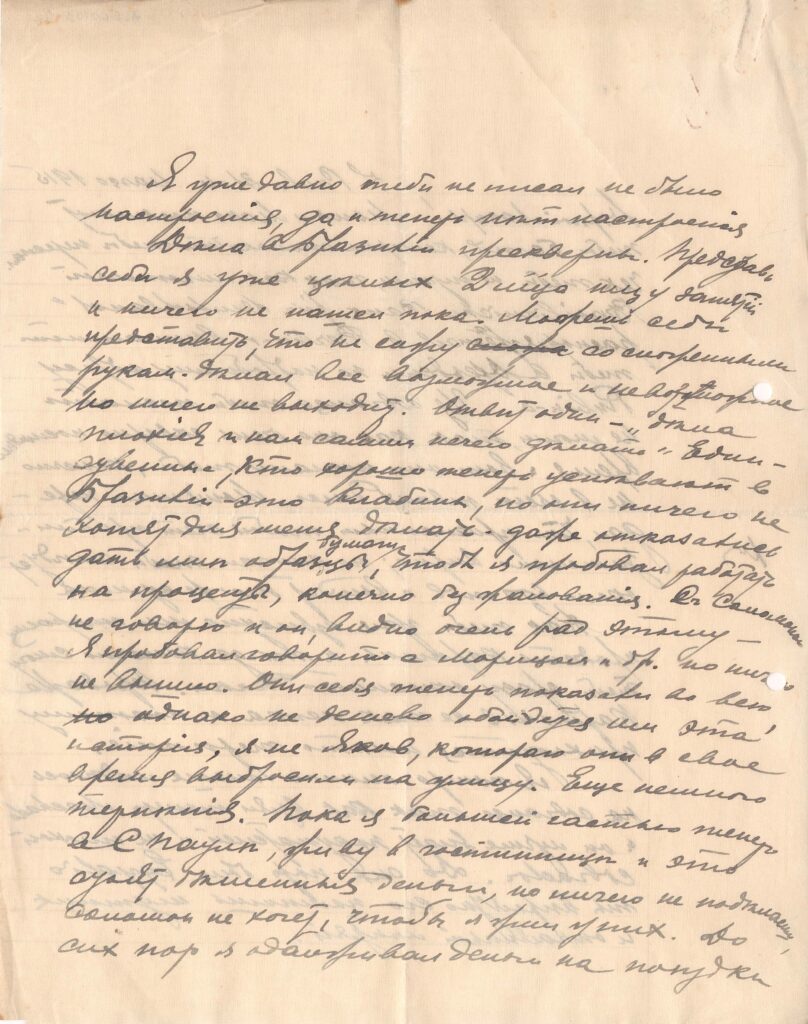 Я уже давно тебѣ не писал не было
настроенія, да и теперь нѣт настроенія
Дѣла в Бразиліи прескверны. Представь
себѣ я уже цѣлых 2 мца ищу занятій
и ничего не нашел пока. Можешь себѣ
представить, что не сижу со сложенными
руками. Дѣлал все возможное и невозможное
но ничего не выходит. Отвѣт один – „дѣла
плохія и нам самим нечего дѣлать“. Един-
ственные, кто хорошо теперь успѣвают в
Бразиліи – это Клабины, но они ничего не
хотят для меня дѣлать. даже отказались
дать мнѣ образцы бумаги, чтобы я пробовал работать
на проценты, конечно без жалованія. Съ Соломоном
не говорю и он, видно очень рад этому –
Я пробовал говорить с Морицом и др. но ничего
не вышло. Они себя теперь показали во всю
но однако не дешево обойдется им эта
исторія, я не Яков, котораго они в свое
время выбросили на улицу. Еще немного
терпѣнія. Пока я большей частью теперь
в С Пауло, живу в гостинницѣ и это
стоит бѣшенныя деньги, но ничего не подѣлаешь,
Соломон не хочет, чтобы я жил у них. До
сих пор я одалживал деньги на поѣздки